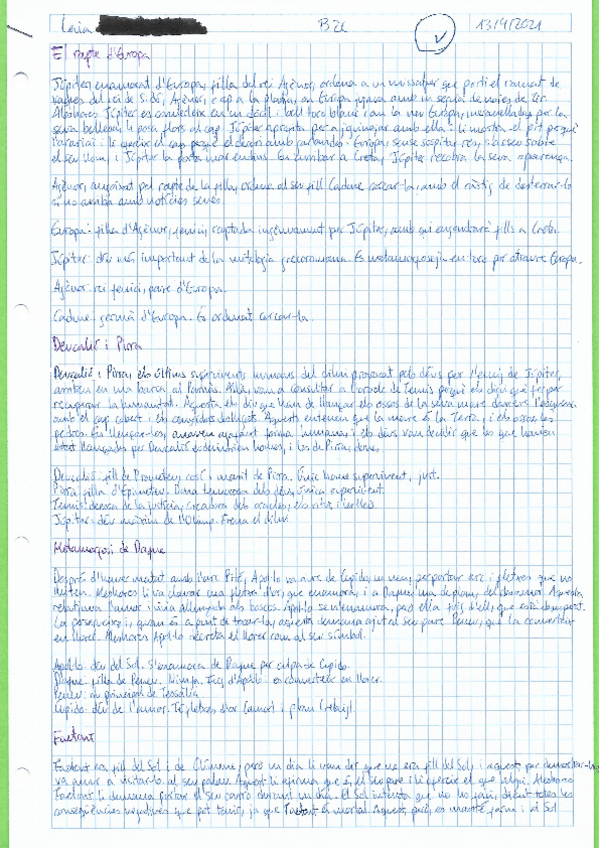 Laia B2C 13/4/2021
El rapte d'Europa
Júpiter, enamorat d'Europa, filla del rei Agènor, ordena a un missatger que porti el ramat de
vaques del rei de Sidó, Agènor, cap a la platja, on Europa jugava amb un seguit de noies de Tir.
Aleshores Júpiter es converteix en un dòcil i bell toro blanc i en la veu Europa, meravellada per la
seva bellesa li posa flors al cap. Júpiter aprofita per a joguinejar amb ella: li mostra el pit perquè
l'acariciï i li ofereix el cap perquè el decori amb garlandes. Europa, sense sospitar res, s'asseu sobre
el seu llom, i Júpiter la porta mar endins. En arribar a Creta, Júpiter recobra la seva aparença.
Agènor, angoixat pel rapte de la filla, ordena al seu fill Cadme cercar-la, amb el càstig de desterrar-lo
si no arriba amb notícies seves.
Europa: filla d'Agènor, fenici, raptada ingènuament per Júpiter, amb qui engendrarà fills a Creta.
Júpiter: déu més important de la mitologia grecoromana. Es metamorfoseja en toro per atraure Europa.
Agènor: rei fenici, pare d'Europa.
Cadme: germà d'Europa. És ordenat cercar-la.
Deucalió i Pirra
Deucalió i Pirra, els últims supervivents humans del diluvi provocat pels déus per l'enuig de Júpiter,
arriben en una barca al Parnàs. Allà, van a consultar a l'oracle de Temis perquè els digui què fer per
recuperar la humanitat. Aquesta els diu que han de llançar els ossos de la seva mare darrere l'esquena
amb el cap cobert i els vestits deslligats. Aquests entenen que la mare és la Terra, i els ossos, les
pedres. En llençar-les, anaven agafant forma humana, i els déus van decidir que les que havien
estat llançades per Deucalió esdevindrien homes, i les de Pirra, dones.
Deucalió: fill de Prometeu, cosí i marit de Pirra. Únic home supervivent, just.
Pirra: filla d'Epimeteu. Dona temorosa dels déus, única supervivent.
Temis: deessa de la justícia, creadora dels oracles, els ritus i les lleis.
Júpiter: déu màxim de l'Olimp. Frena el diluvi.
Metamorfosi de Dafne
Després d'haver matat amb l'arc Pitó, Apol·lo va riure de Cupido, un nen, per portar arc i fletxes que no
Aleshores li va clavar una fletxa d'or, que enamora, i a Dafne, una de plom, del desamor. Aquesta
rebutjava l'amor i vivia allunyada als boscos. Apol·lo se n'enamora, però ella fuig d'ell, que està disposat.
La persegueix i, quan és a punt de tocar-la, aquesta demana ajut al seu pare Peneu, que la converteix
en llorer. Aleshores Apol·lo decreta el llorer com al seu símbol.
Apol·lo: déu del Sol. S'enamora de Dafne per culpa de Cupido.
Dafne: filla de Peneu. Nimfa. Fuig d'Apol·lo i es converteix en llorer.
Peneu: riu principal de Tessàlia
Cupido: déu de l'amor. Té fletxes d'or (amor) i plom (rebuig).
Faetont
Faetont era fill del Sol i de Clímene, però un dia li van dir que no era fill del Sol, i aquest, per demostrar-ho,
va anar a visitar-lo al seu palau. Aquest li afirma que és el seu pare i li ofereix el que vulgui. Aleshores
Faetont li demana portar el seu carro durant un dia. El Sol intenta que no ho faci, dient totes les
conseqüències negatives que pot tenir, ja que Faetont és mortal. Aquest, però, es manté ferm i el Sol